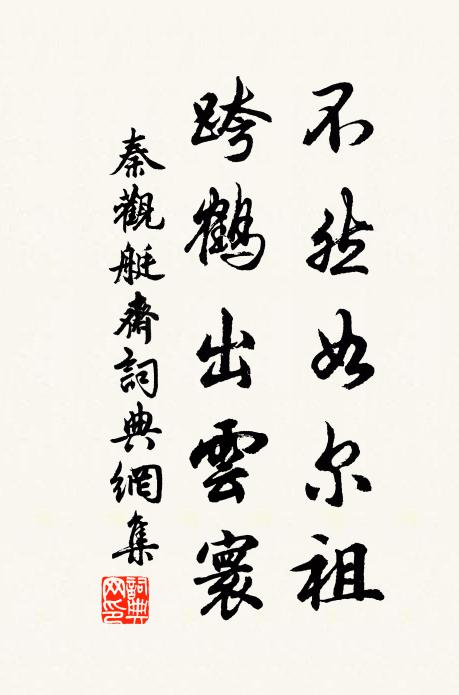 不然如尔祖
跨鹤出雲寰
秦觀艇齋詞典網集
詞典網印